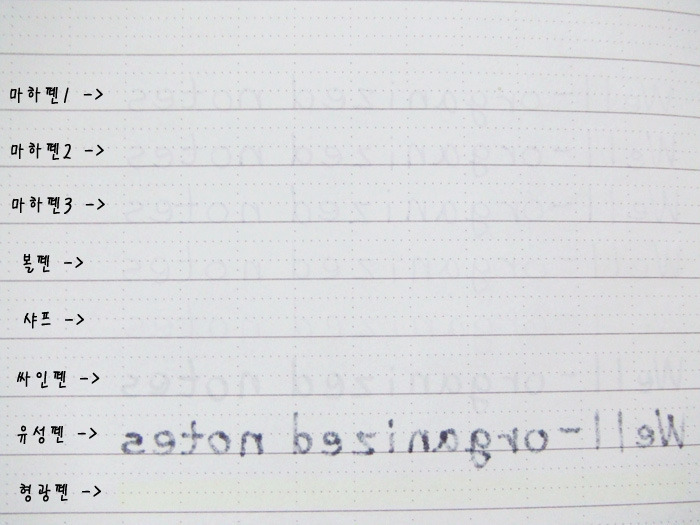 마하펜1 -> Well-organized notes
마하펜2 -> Well-organized notes
마하펜3 -> Well-organized notes
볼펜 -> Well-organized notes
샤프 -> organized notes
싸인펜 -> Well-organized notes
유성펜 -> Well-organized notes
형광펜 ->